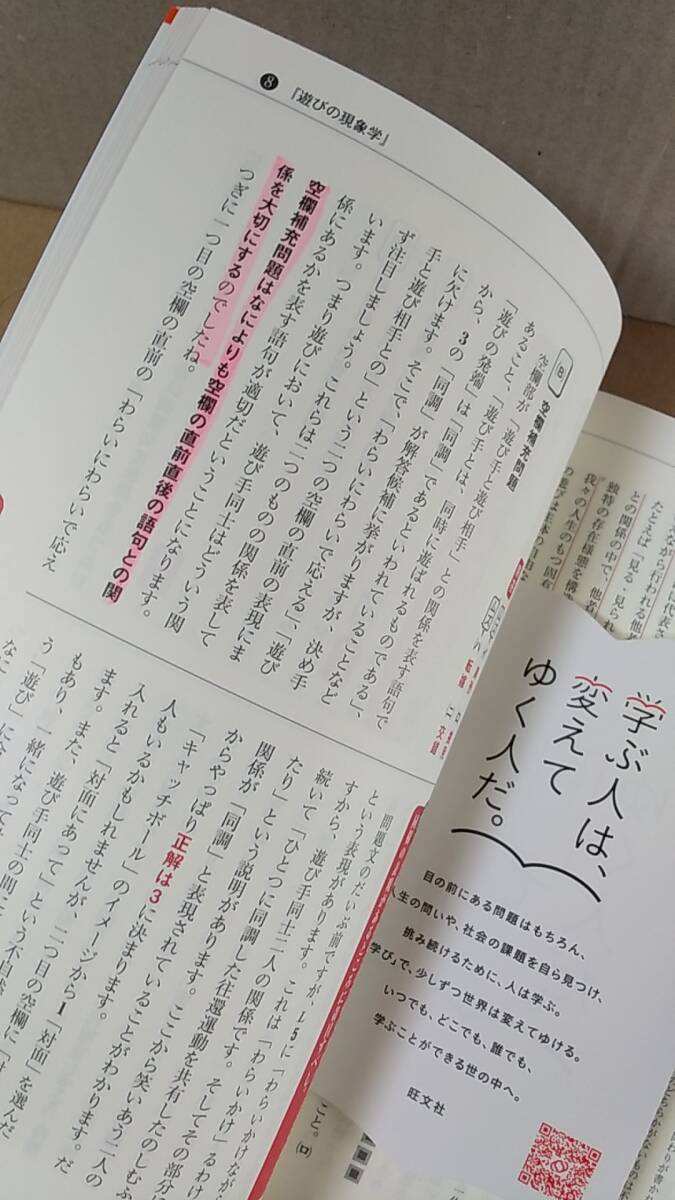 ❽ 『遊びの現象学』
B 空欄補充問題
空欄部が「遊び手と遊び相手」との関係を表す語句で
あること、「遊び手とは、同時に遊ばれるものである」、
「遊びの発端」は「同調」であるといわれていることなど
から、3の「同調」が解答候補に挙がりますが、決め手
に欠けます。そこで、「わらいにわらいで応える」、「遊び
手と遊び相手との」という二つの空欄の直前の表現にま
ず注目しましょう。これらは二つのものの関係を表して
います。つまり遊びにおいて、遊び手同士はどういう関
係にあるかを表す語句が適切だということになります。
空欄補充問題はなによりも空欄の直前直後の語句との関
係を大切にするのでしたね。
つぎに一つ目の空欄の直前の「わらいにわらいで応え
問題文のだいぶ前ですが、L5に「わらいかけながら
という表現があります。これは「わらいかけ」るわけ
すから、遊び手同士二人の関係です。そしてその部分に
続いて「ひとつに同調した往還運動を共有したのしむふ
たり」という説明があります。ここから笑いあう二人の
関係が「同調」と表現されていることがわかります。だ
からやっぱり正解は3に決まります。
「キャッチボール」のイメージから1「対面」を選んだ
人もいるかもしれませんが、二つ目の空欄に「対
入れると「対面にあって」という不自然
ます。また、遊び手同士の間に
もあり、一緒になって
う「遊び」に
なに
転嫁
交錯
こと。(ロ)
に代表さ
ながら行われる他
たとえば「見る・見られ
との関係の中で、他者
独特の存在様態を構造
我々の人生のもつ固有
の遊びは主体の自由な
学ぶ人は、
変えて
ゆく人だ。
目の前にある問題はもちろん、
人生の問いや、社会の課題を自ら見つけ、
挑み続けるために、人は学ぶ。
「学び」で、少しずつ世界は変えてゆける。
いつでも、どこでも、誰でも、
学ぶことができる世の中へ。
旺文社